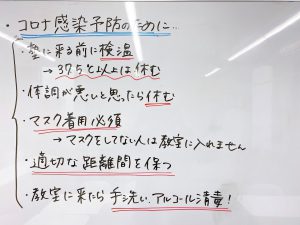 ・コロナ感染予防のために…
・塾に来る前に検温
→37.5℃以上は休む
・体調が悪いと思ったら休む
・マスク着用必須
→マスクをしてない人は教室に入れません
・適切な距離間を保つ
・教室に来たら手洗い、アルコール消毒！